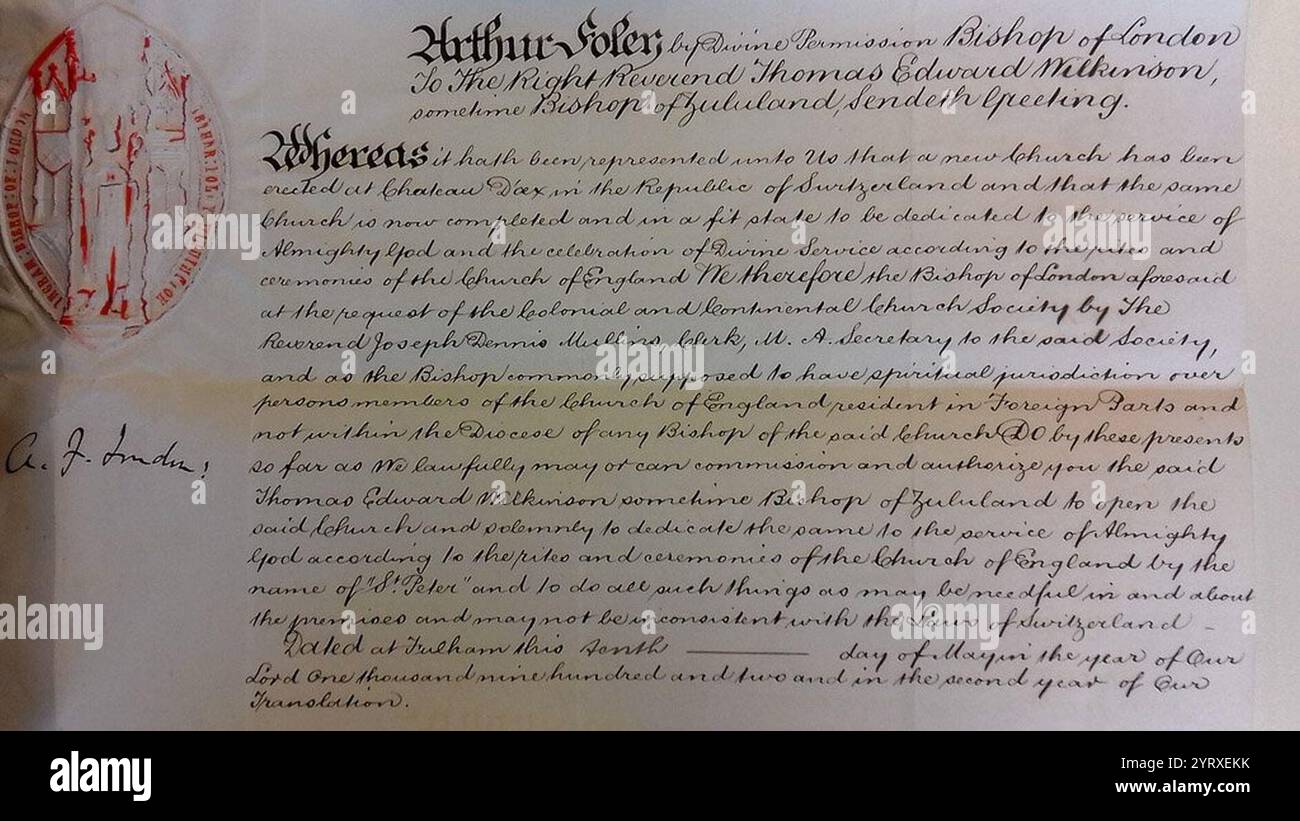 Arthur Foley by Divine Permission Bishop of London
To The Right Reverend Thomas Edward Wilkinson,
sometime Bishop of Zululand, Sendeth Greeting.
Whereas it hath been represented unto Us that a new Church has been
erected at Chateau D'œx, in the Republic of Switzerland and that the same
Church is now completed and in a fit state to be dedicated to the service of
Almighty God and the celebration of Divine Service according to the rites and
ceremonies of the Church of England We therefore the Bishop of London aforesaid
at the request of the Colonial and Continental Church Society by The
Reverend Joseph Dennis Mullins, Clerk, M. A. Secretary to the said Society,
and as the Bishop commonly supposed to have spiritual jurisdiction over
persons members of the Church of England resident in Foreign Parts and
not within the Diocese of any Bishop of the said Church DO by these presents
so far as We lawfully may or can commission and authorize you the said
Thomas Edward Wilkinson sometime Bishop of Zululand to open the
said Church and solemnly to dedicate the same to the service of Almighty
God according to the rites and ceremonies of the Church of England by the
name of "St Peter" and to do all such things as may be needful in and about
the premises and may not be inconsistent with the Laws of Switzerland –
Dated at Fulham this tenth day of May in the year of Our
Lord One thousand nine hundred and two and in the second year of Our
Translation.
A. F. London:
INGRAM: BISHOP: OF: LONDON
alamy
alamy
Image ID: G9YRXEKK
www.alamy.com